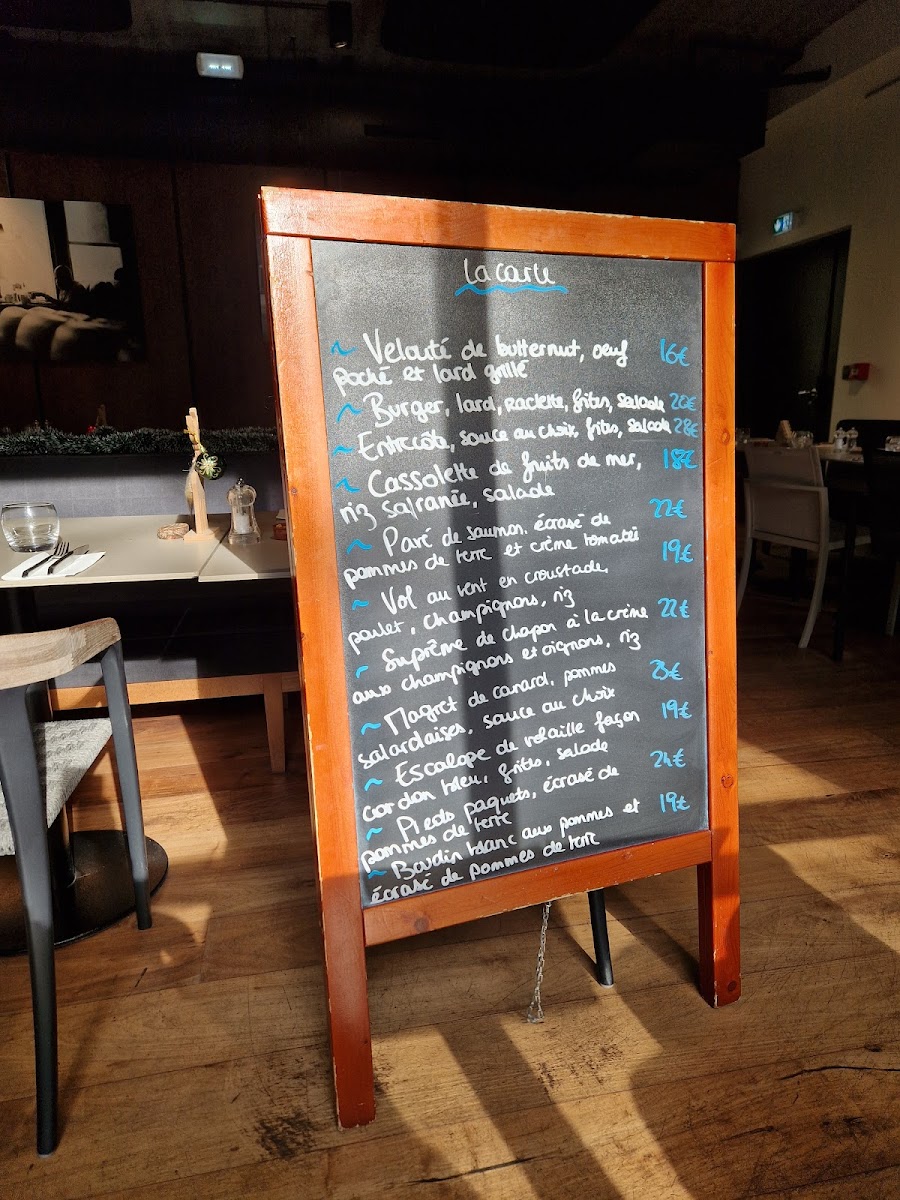 La carte
~ Velouté de butternut, oeuf 16€
poché et lard grillé
~ Burger, lard, raclette, frites, salade 20€
~ Entrecôte, sauce au choix, frites, salade 28€
~ Cassolette de fruits de mer, 18€
riz safranée, salade
~ Pavé de saumon, écrasé de 22€
pommes de terre et crème tomatée
~ Vol au vent en croustade, 19€
poulet, champignons, riz
~ Suprême de chapon à la crème 22€
aux champignons et oignons, riz
~ Magret de canard, pommes 25€
salardaises, sauce au choix
~ Escalope de volaille façon 19€
cordon bleu, frites, salade
~ Pieds paquets, écrasé de 24€
pommes de terre
~ Boudin blanc aux pommes et 19€
écrasé de pommes de terre